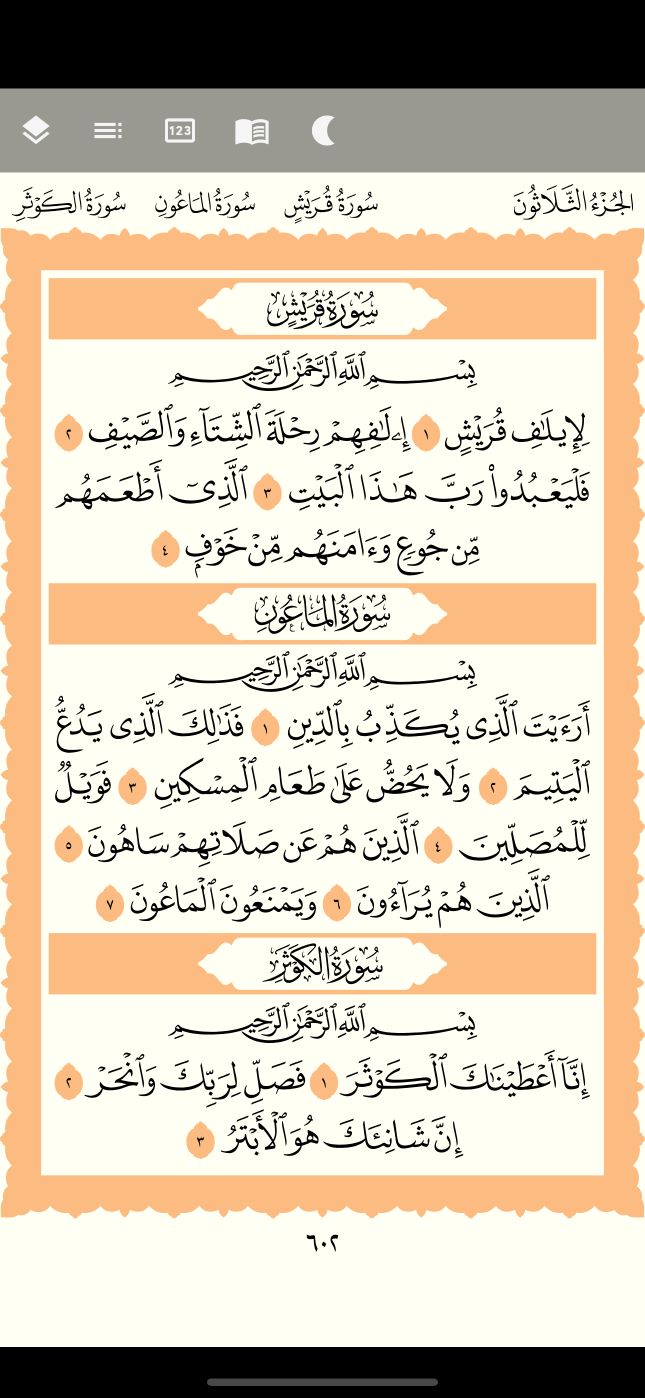 123
الجُزْءُ الثَّلَاثُونَ سُورَةُ قُرَيْشٍ سُورَةُ المَاعُونِ سُورَةُ الكَوْثَرِ
سُورَةُ قُرَيْشٍ
بِسْمِ ٱللَّهِ ٱلرَّحْمَٰنِ ٱلرَّحِيمِ
لِإِيلَٰفِ قُرَيْشٍ ١ إِۦلَٰفِهِمْ رِحْلَةَ ٱلشِّتَآءِ وَٱلصَّيْفِ ٢
فَلْيَعْبُدُوا۟ رَبَّ هَٰذَا ٱلْبَيْتِ ٣ ٱلَّذِىٓ أَطْعَمَهُم
مِّن جُوعٍ وَءَامَنَهُم مِّنْ خَوْفٍۭ ٤
سُورَةُ المَاعُونِ
بِسْمِ ٱللَّهِ ٱلرَّحْمَٰنِ ٱلرَّحِيمِ
أَرَءَيْتَ ٱلَّذِى يُكَذِّبُ بِٱلدِّينِ ١ فَذَٰلِكَ ٱلَّذِى يَدُعُّ
ٱلْيَتِيمَ ٢ وَلَا يَحُضُّ عَلَىٰ طَعَامِ ٱلْمِسْكِينِ ٣ فَوَيْلٌ
لِّلْمُصَلِّينَ ٤ ٱلَّذِينَ هُمْ عَن صَلَاتِهِمْ سَاهُونَ ٥
ٱلَّذِينَ هُمْ يُرَآءُونَ ٦ وَيَمْنَعُونَ ٱلْمَاعُونَ ٧
سُورَةُ الكَوْثَرِ
بِسْمِ ٱللَّهِ ٱلرَّحْمَٰنِ ٱلرَّحِيمِ
إِنَّآ أَعْطَيْنَٰكَ ٱلْكَوْثَرَ ١ فَصَلِّ لِرَبِّكَ وَٱنْحَرْ ٢
إِنَّ شَانِئَكَ هُوَ ٱلْأَبْتَرُ ٣
٦٠٢